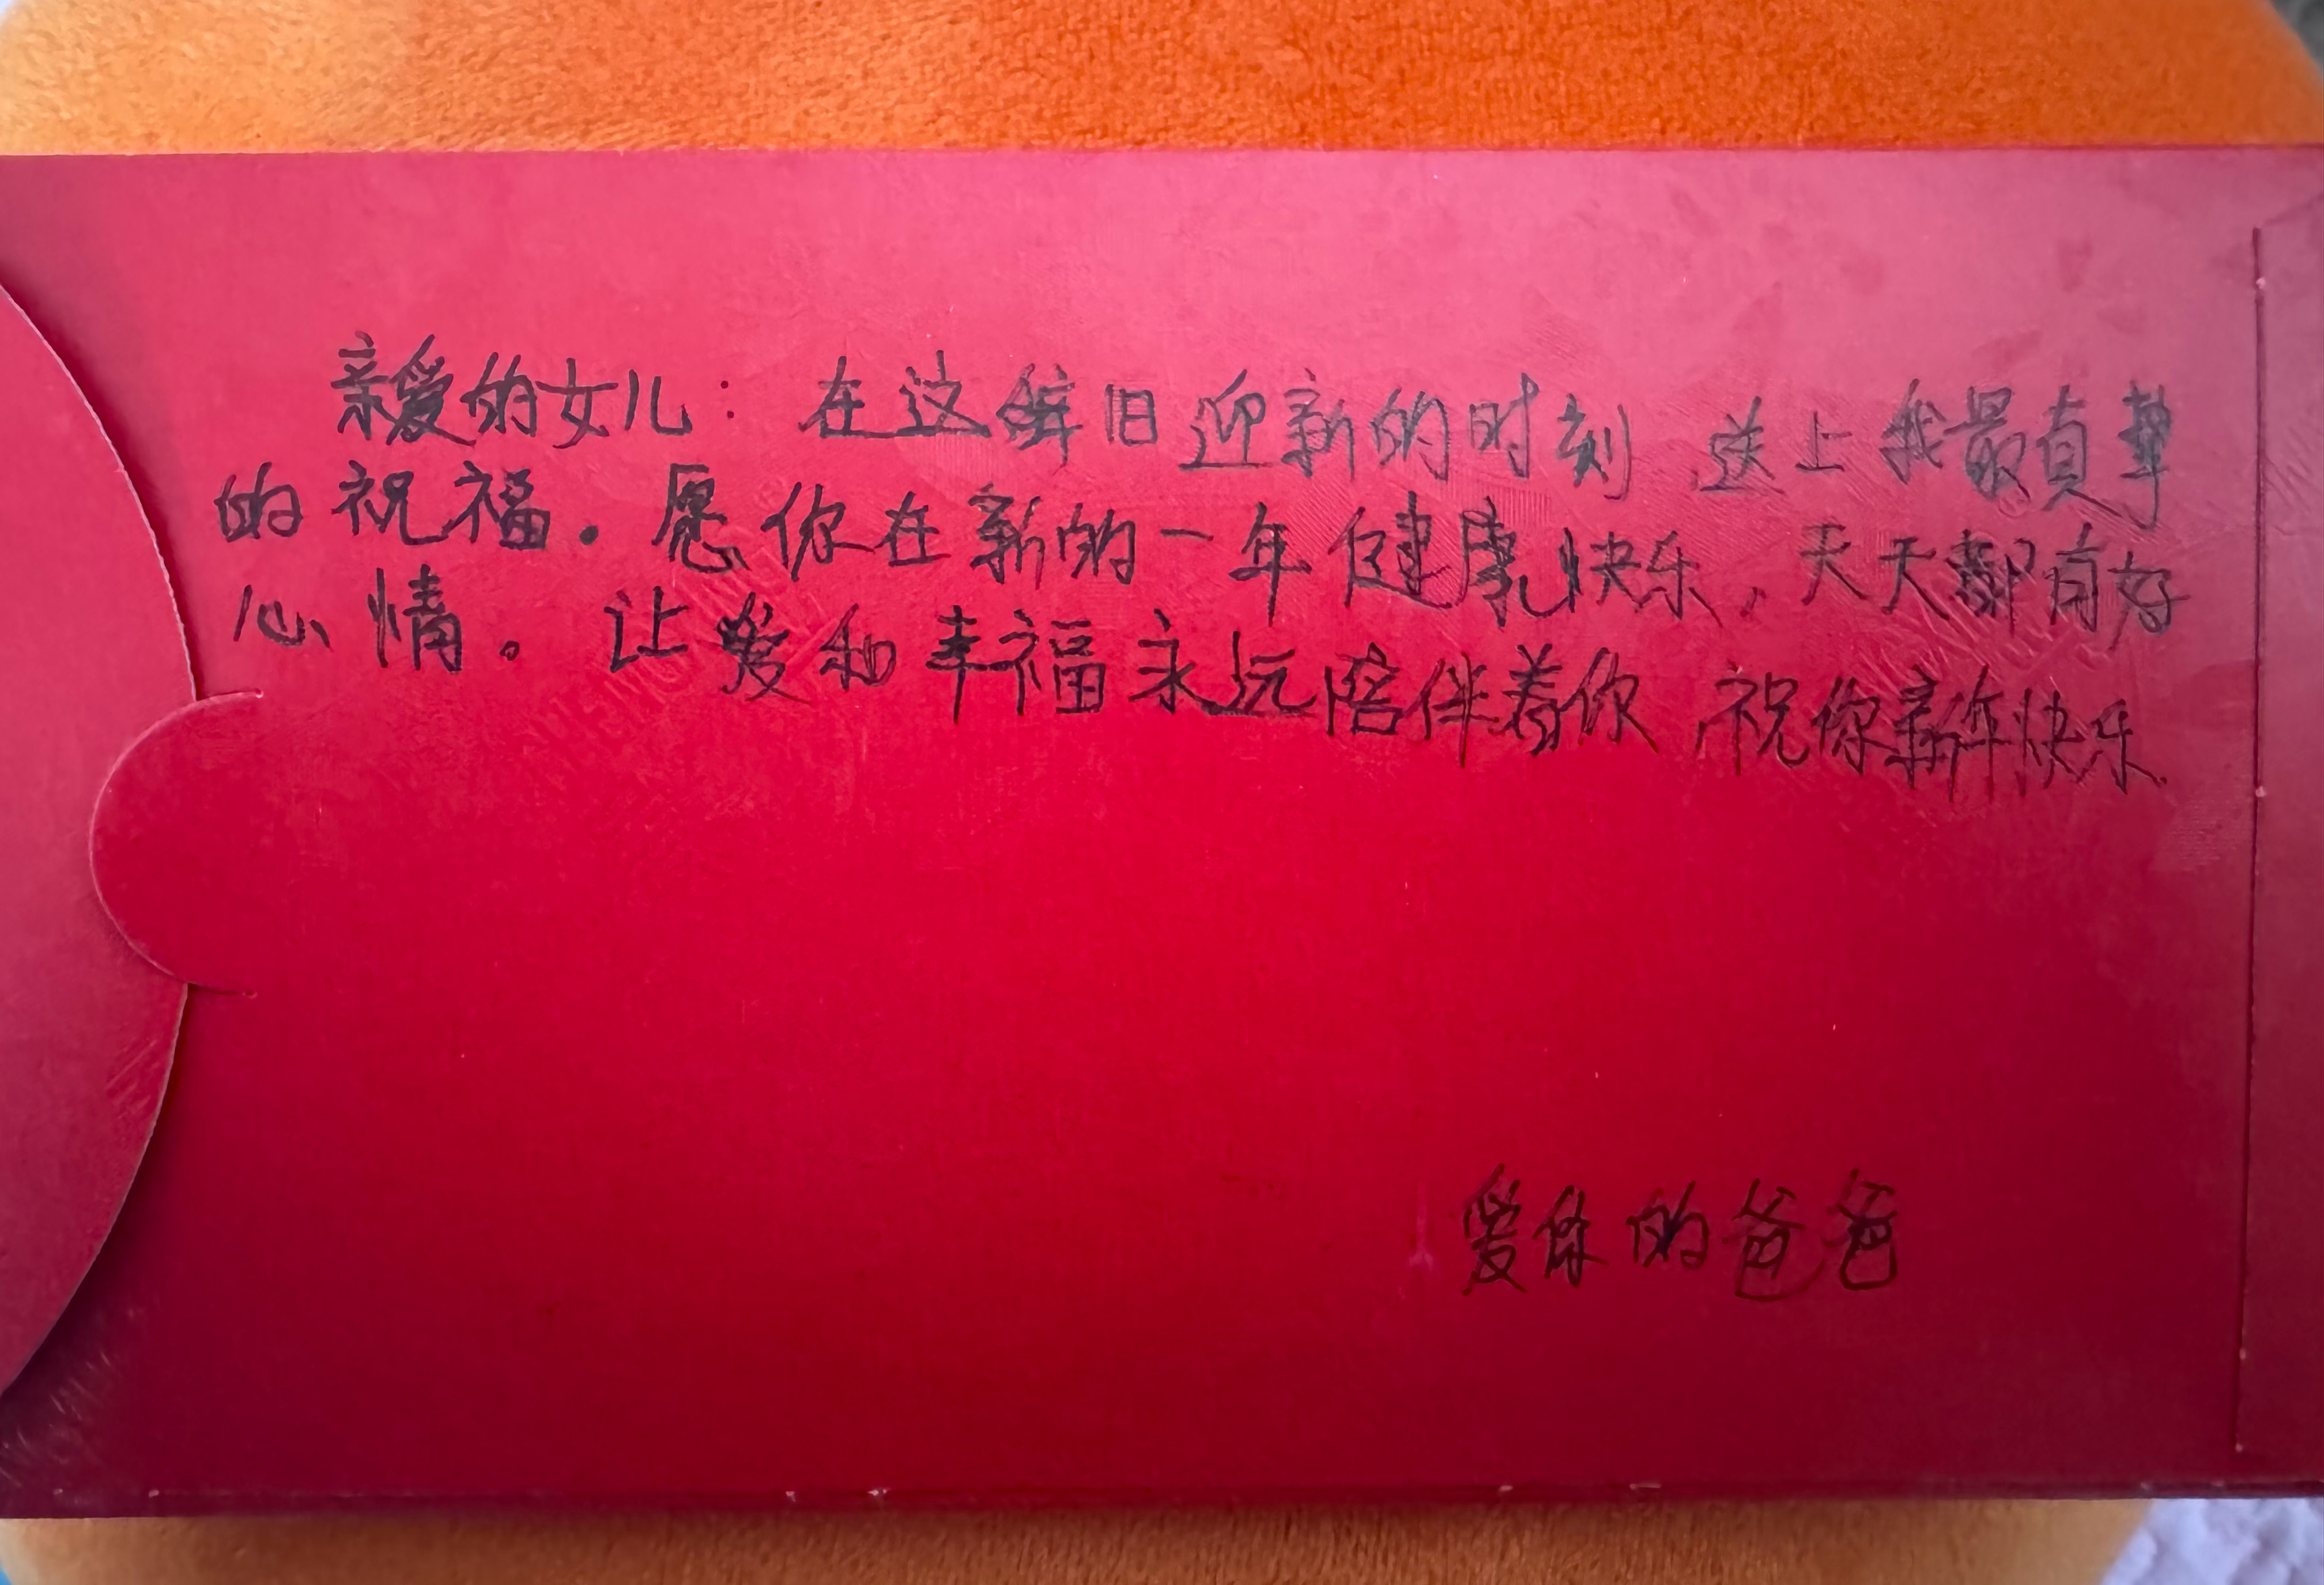 亲爱的女儿：在这辞旧迎新的时刻 送上我最真挚
的祝福。愿你在新的一年健康快乐，天天都有好
心情。让爱和幸福永远陪伴着你 祝你新年快乐.
爱你的爸爸